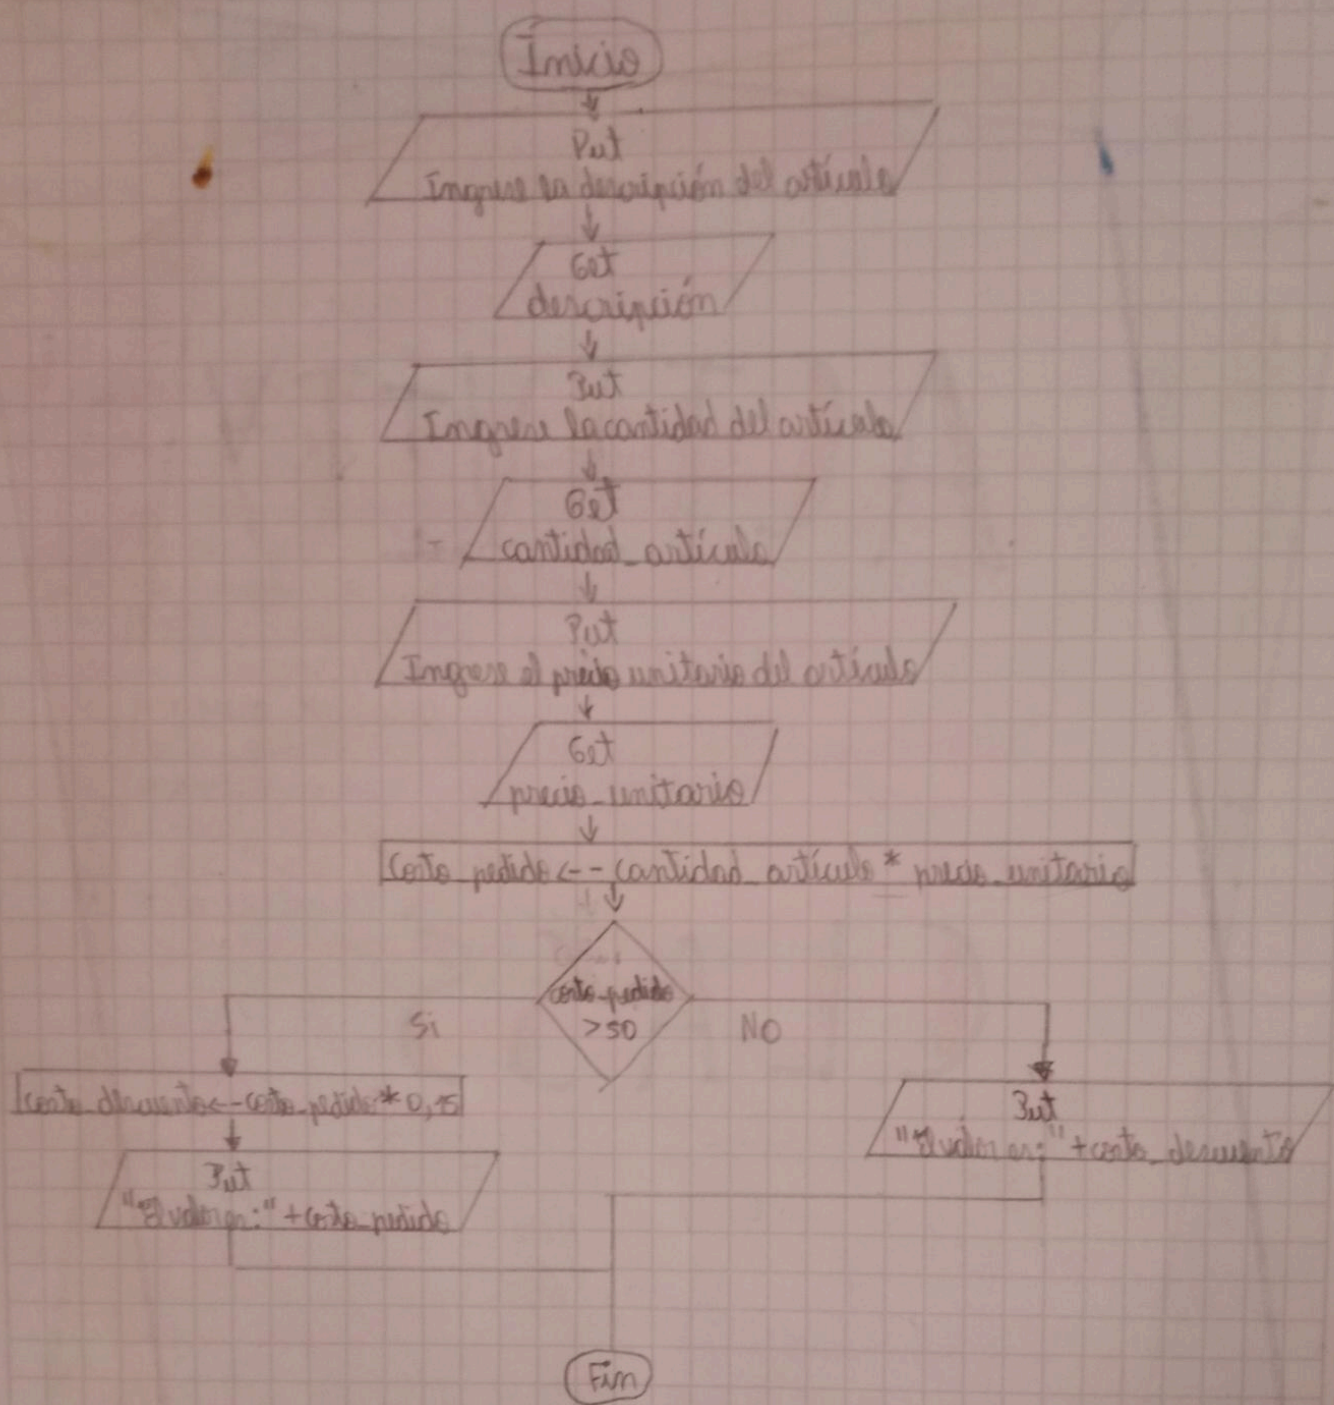 Inicio
Put
Ingrese la descripción del artículo
Get
descripción
Put
Ingrese la cantidad del artículo
Get
cantidad_artículo
Put
Ingrese el precio unitario del artículo
Get
precio_unitario
Costo_pedido <-- cantidad_artículo * precio_unitario
costo_pedido
>50
Si
NO
Costo_descuento <-- costo_pedido * 0,15
Put
"El valor es:" + costo_descuento
Put
"El valor es:" + costo_pedido
Fin